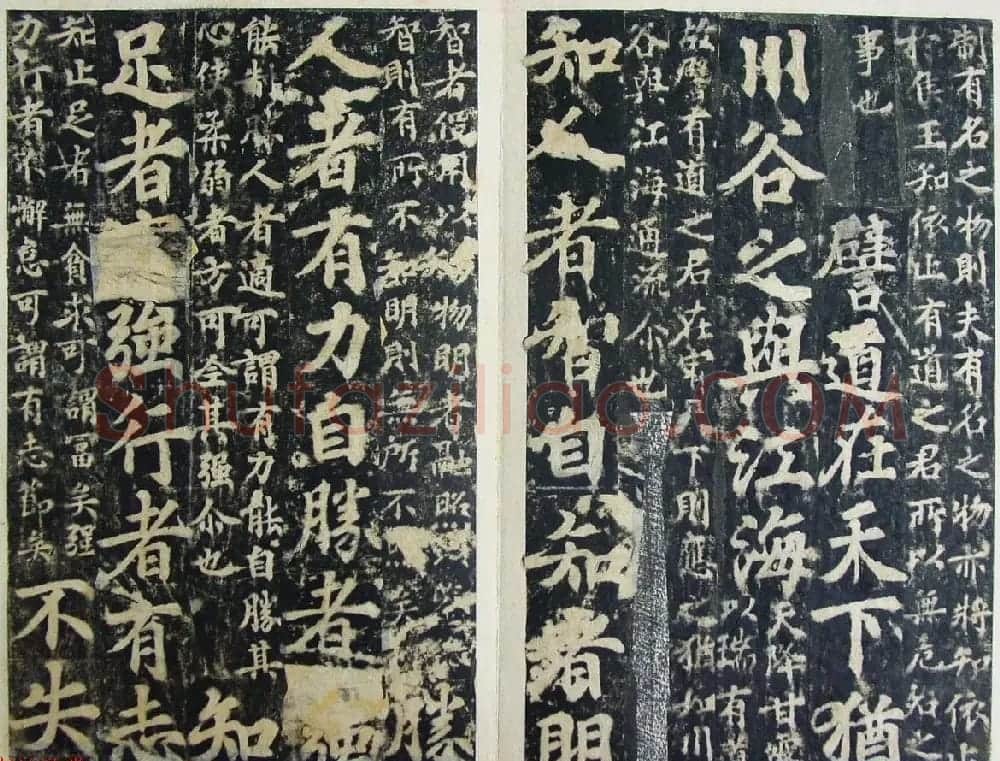 制有名之物則夫有名之物亦將知依止
於侯王知依止有道之君所以無危殆之
事也
譬道在天下猶
川谷之與江海
天降甘露
以瑞有道
故譬有道之君在宥天下則應之猶如川
谷與江海通流尒也
知人者智自知者明
智者役用以知物明者融照以
智則有所不知明則無所不照矣
勝
人者有力自勝者
能制勝人者適可謂有力能自勝其
心使柔弱者方可全其強尒也
知
足者強行者有志
知止足者無貪求可謂富矣強
力行者不懈怠可謂有志節矣
不失
Shufaziliao.COM